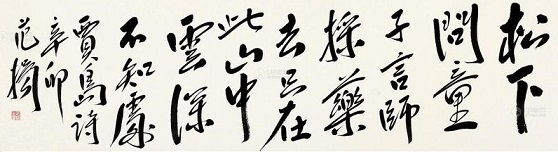 松下
問童
子言師
採藥
去只在
此山中
雲深
不知處
賈島詩
辛卯